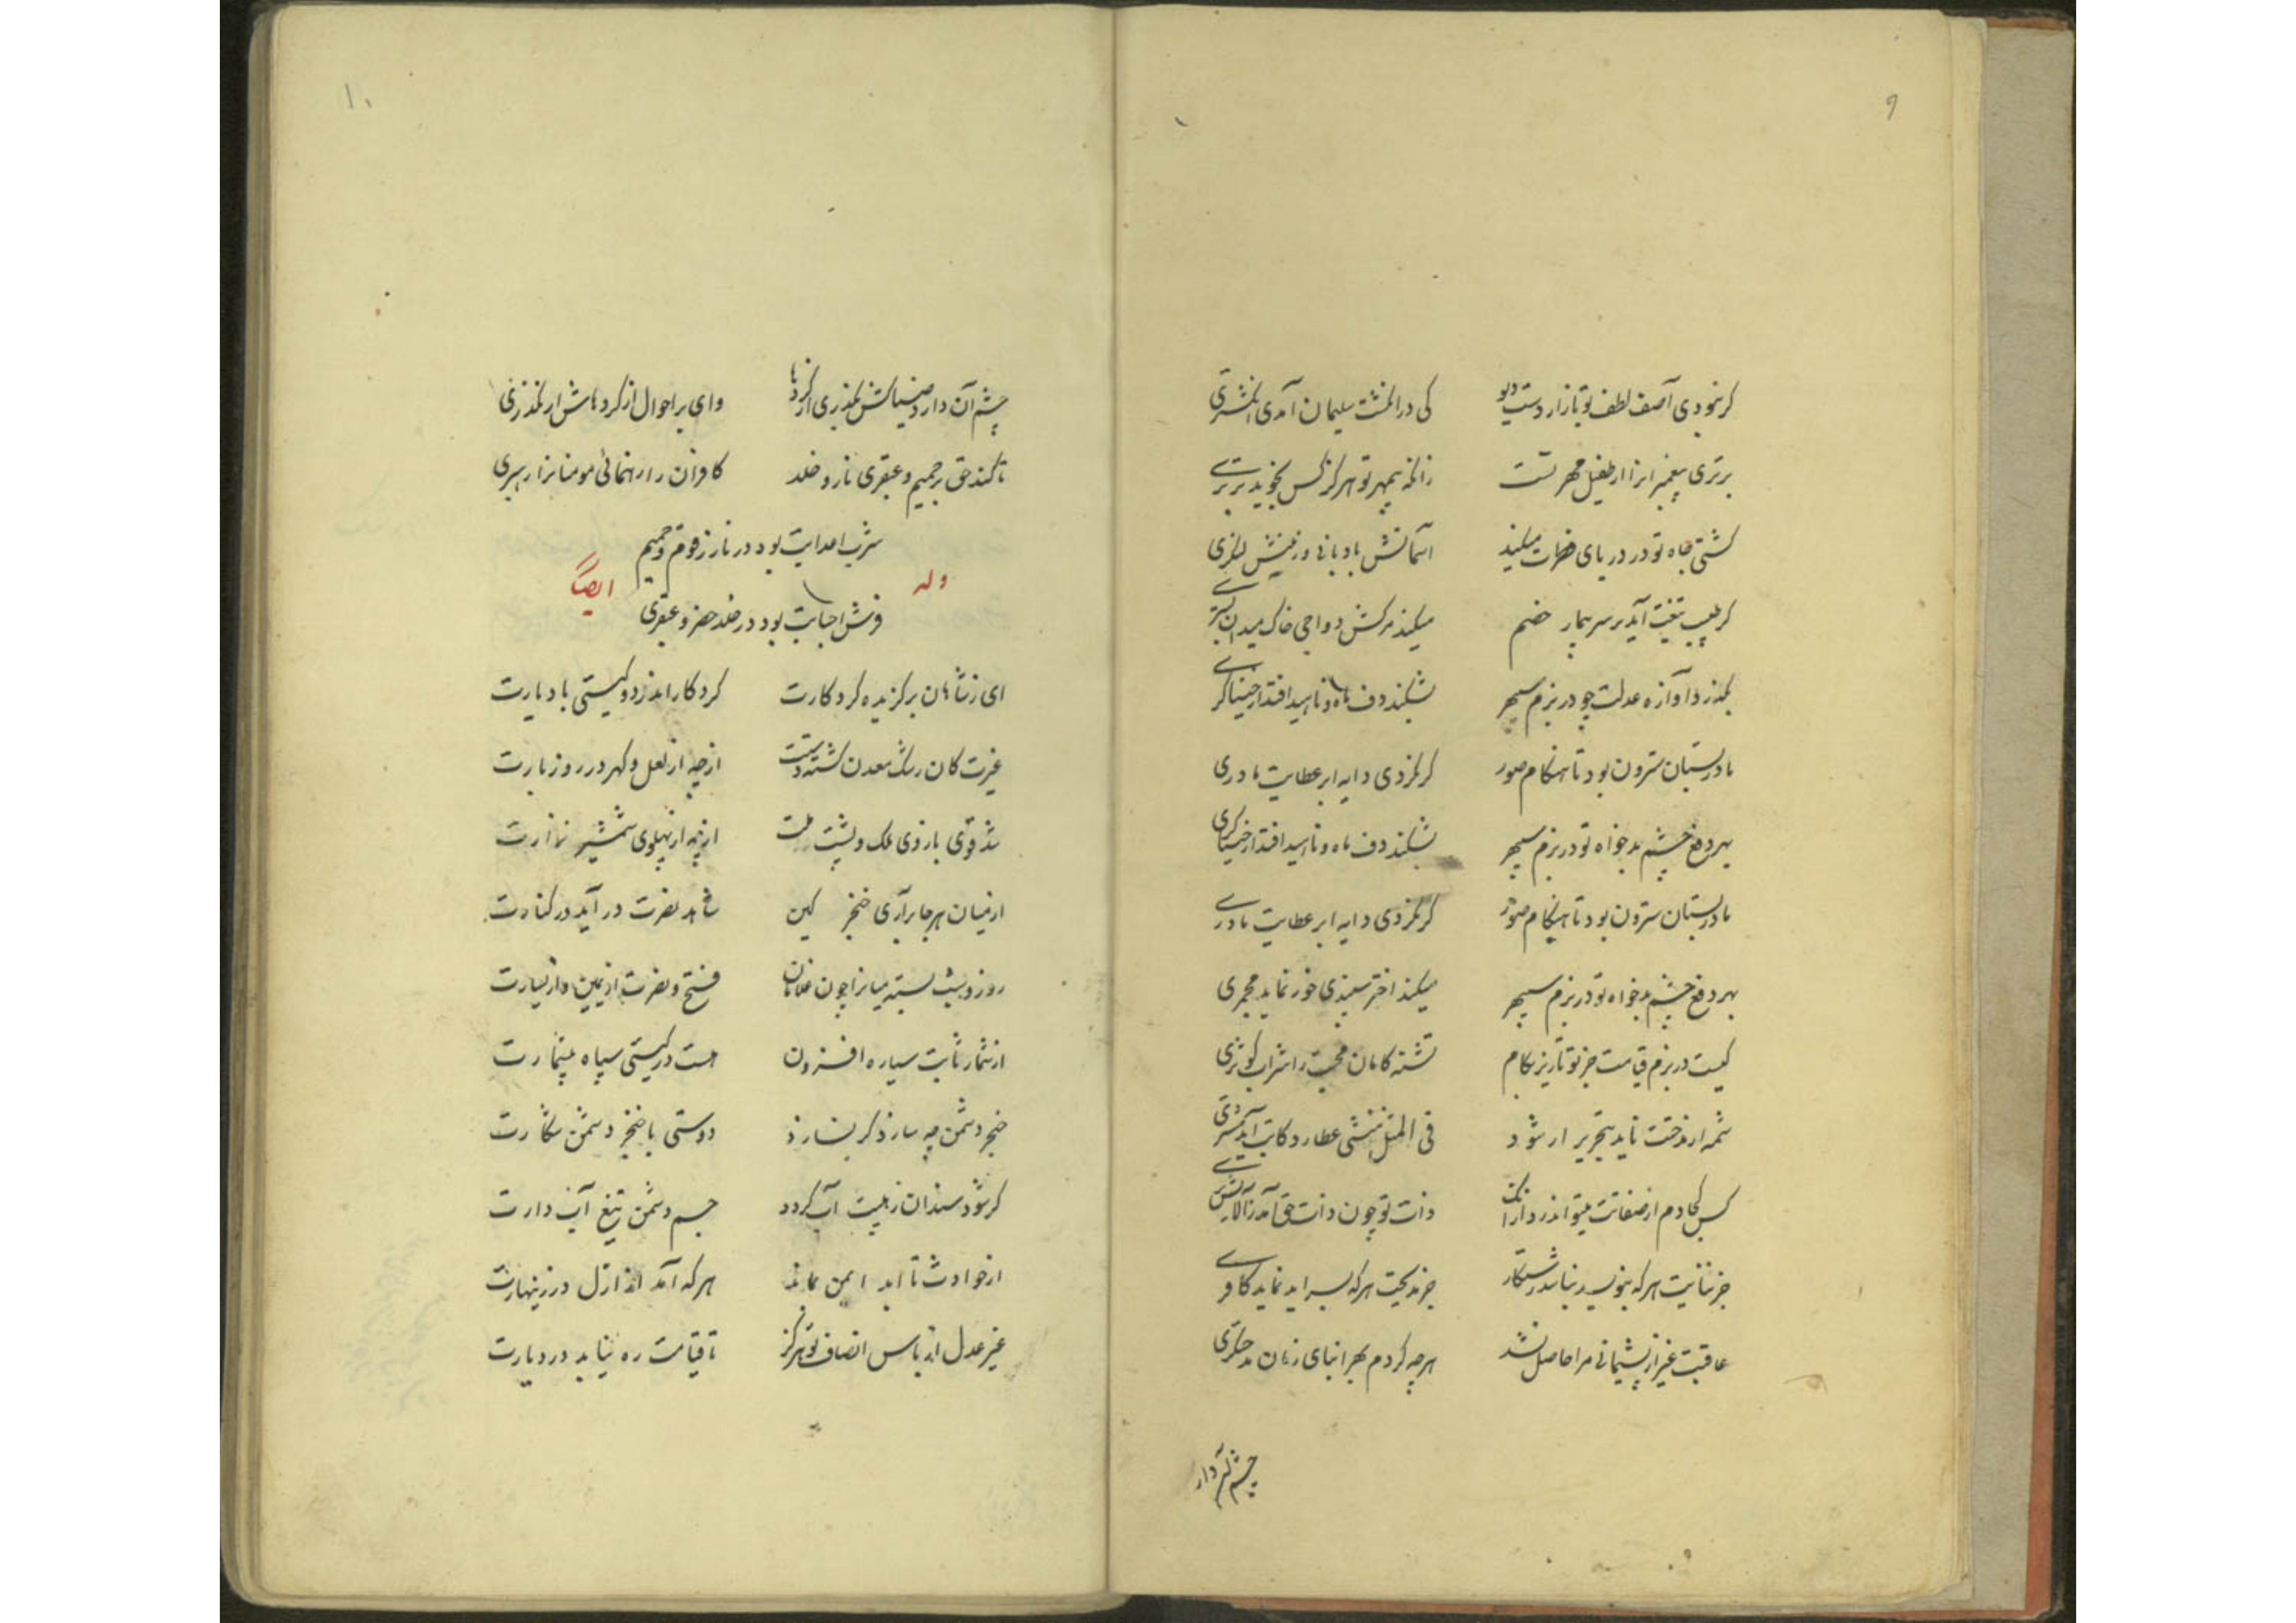 ۹
گر نبودی آصف لطف تو تا زار دست دیو کی در انگشت سلیمان آمدی انگشتری
برتری پیغمبرانرا از طفیل مهر تست زانکه بیمهر تو هرگز کس نجوید برتری
کشتی جاه تو در دریای میکند آسمانش بادبانی و زمینش لنگری
گر طبیب تیغت آید بر سر بیمار خصم میکند مرکش دواجی خاک میدان بستری
بگذرد آوازه عدلت چو در بزم سپهر بشکند دف ماه و ناهید افتد از خنیاگری
مادر بستان سترون بود تا هنگام صور گر نکردی دایه ابر عطایت مادری
بهر دفع چشم بدخواه تو در بزم سپهر بشکند دف ماه و ناهید افتد از خنیاگری
مادر بستان سترون بود تا هنگام صور گر نکردی دایه ابر عطایت مادری
بهر دفع چشم بدخواه تو در بزم سپهر میکند اختر سپندی خور نماید مجمری
کیست در بزم قیامت جز تو تا ریزد بکام تشنه کامان محبت را شراب کوثری
شمه از مدحت ناید بتحریر ار شود فی المثل منشی عطارد کاتب آید مشتری
کس کجا دم از صفاتت میتواند زد از آنک ذات تو چون ذات حق آمد ز آلایش بری
جز ثنایت هر که بنویسد نباشد رستگار جز مدیحت هر که بسراید نماید کافری
عاقبت غیر از پشیمانی مرا حاصل نشد هر چه کردم بهر ابنای زمان مدحتگری
چشم آن دارد
۱۰
چشم آن دارد کش بگذری از کردها وای بر احوال از کردهاش ار نگذری
تا کند حق بر جحیم و عبقری نار و خلد کافران را رهنمائی مومنانرا رهبری
شرب اعدایت بود در نار زقوم و حمیم
وله ایضاً
فرش احبابت بود در خلد خضر و عبقری
ای ز شاهان برگزیده کردگارت کردگار اندر دو گیتی باد یارت
غیرت کان رشک معدن گشته دستت از چه از لعل و گهر در روز بارت
شد قوی بازوی ملک و پشت ملت از چه از پهلوی شمشیر نزارت
از میان هر جا برآری خنجر کین شاهد نصرت درآید در کنارت
روز و شب بسته میانرا چون غلامان فتح و نصرت از یمین و از یسارت
از شمار ثابت سیاره افزون هست در گیتی سپاه بیشمارت
خنجر دشمن چه سازد گر نسازد دوستی با خنجر دشمن شکارت
گر شود سندان ز هیبت آب گردد جسم دشمن تیغ آبدارت
از حوادث تا ابد ایمن بماند هر که آمد از ازل در زینهارت
غیر عدل از پاس انصاف تو هرگز تا قیامت ره نیابد در دیارت